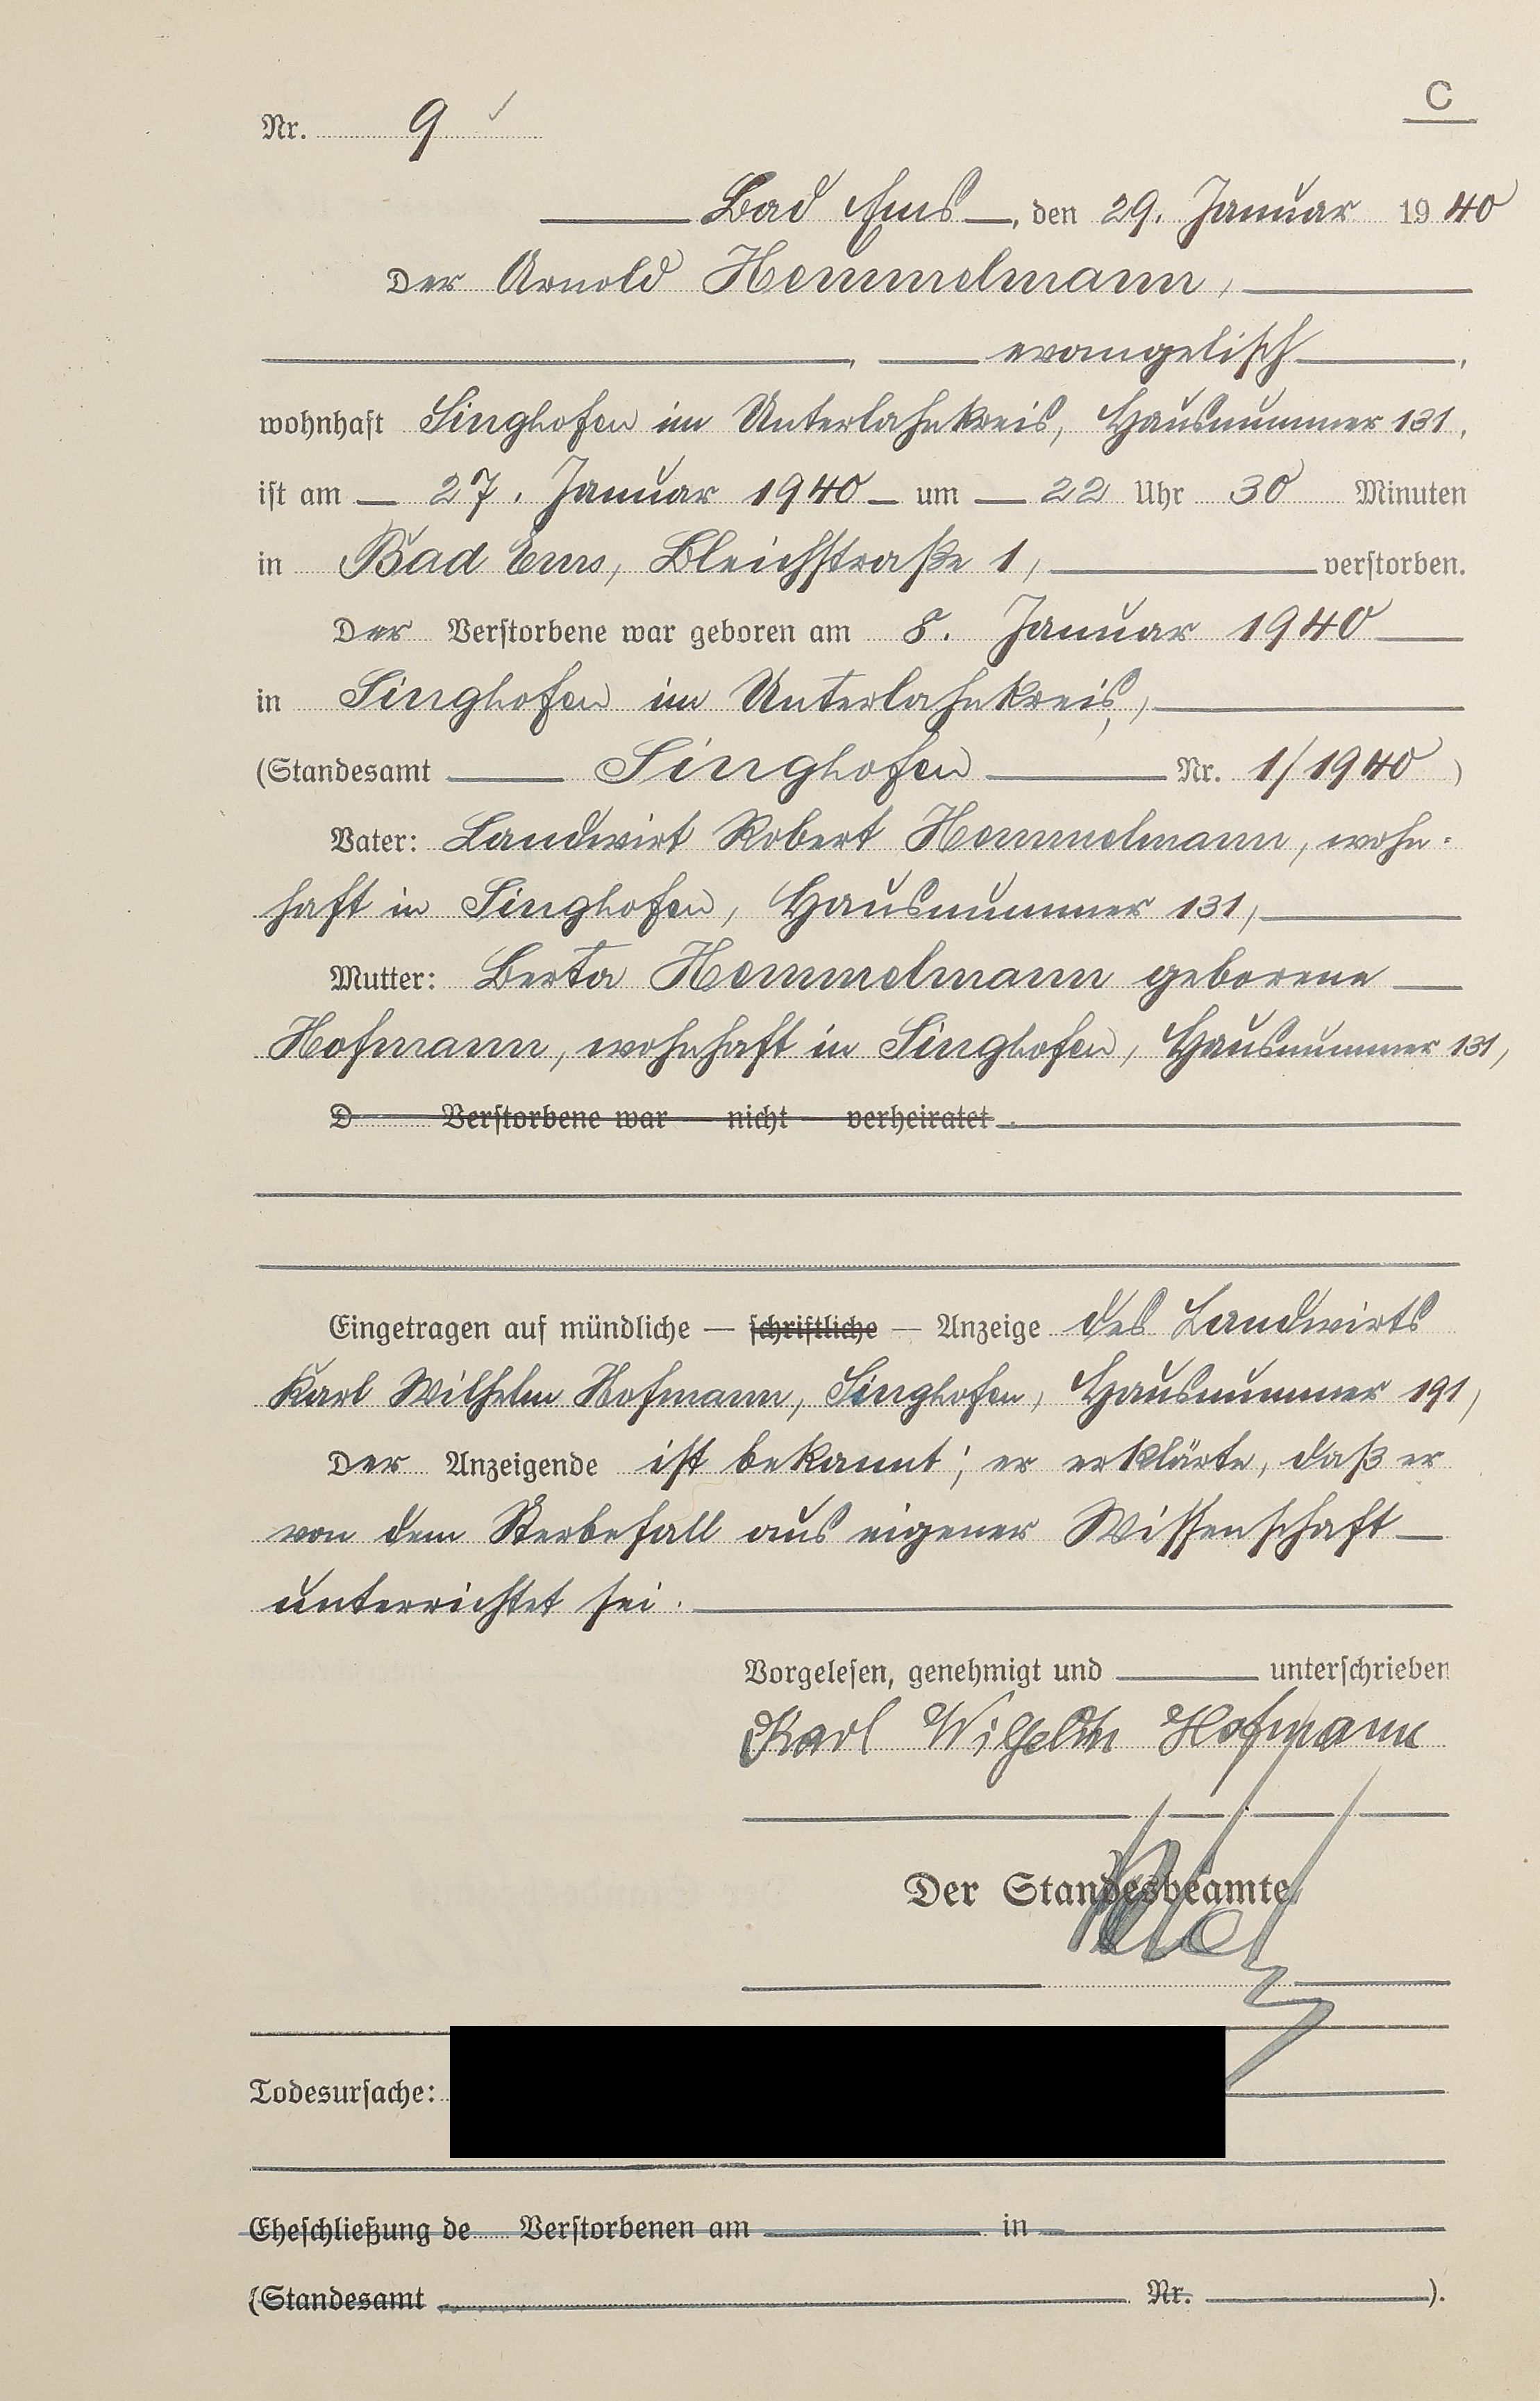 C
Nr. 9
Bad Ems, den 29. Januar 1940
Der Arnold Hemmelmann,
, evangelisch,
wohnhaft Singhofen im Unterlahnkreis, Hausnummer 131,
ist am 27. Januar 1940 um 22 Uhr 30 Minuten
in Bad Ems, Bleichstraße 1, verstorben.
Der Verstorbene war geboren am 8. Januar 1940
in Singhofen im Unterlahnkreis,
(Standesamt Singhofen Nr. 1/1940)
Vater: Landwirt Robert Hemmelmann, wohn-
haft in Singhofen, Hausnummer 131,
Mutter: Berta Hemmelmann geborene
Hofmann, wohnhaft in Singhofen, Hausnummer 131,
D Verstorbene war — nicht — verheiratet.
Eingetragen auf mündliche — schriftliche — Anzeige des Landwirts
Karl Wilhelm Hofmann, Singhofen, Hausnummer 191,
Der Anzeigende ist bekannt; er erklärte, daß er
von dem Sterbefall aus eigener Wissenschaft
unterrichtet sei.
Vorgelesen, genehmigt und unterschrieben
Karl Wilhelm Hofmann
Der Standesbeamte
Todesursache:
Eheschließung de Verstorbenen am in
(Standesamt Nr. ).